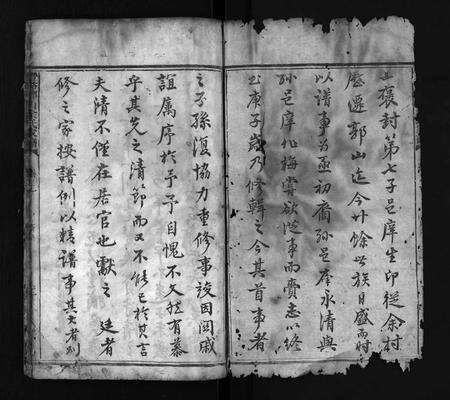 褒封第七子邑庠生印從余村
歷遷郭山迄今卅餘世族日盛而時
以譜事為亟初裔孫邑庠永清與
孫邑庠作梅嘗欲從事而費志以終
庚子歲乃修輯之今其首事者
之子孫復協力重修事竣因閔戚
誼屬序於予予自愧不文然有慕
乎其先之清節而又不能已於其言
夫清不僅在居官也獻之廷者
修之家按譜例以精譜事其大者